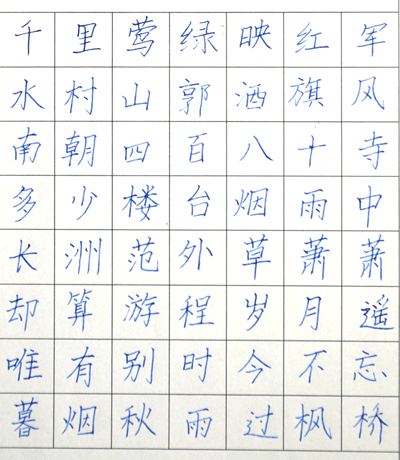 千里莺绿映红军
水村山郭酒旗风
南朝四百八十寺
多少楼台烟雨中
长洲范外草萧萧
却算游程岁月遥
唯有别时今不忘
暮烟秋雨过枫桥